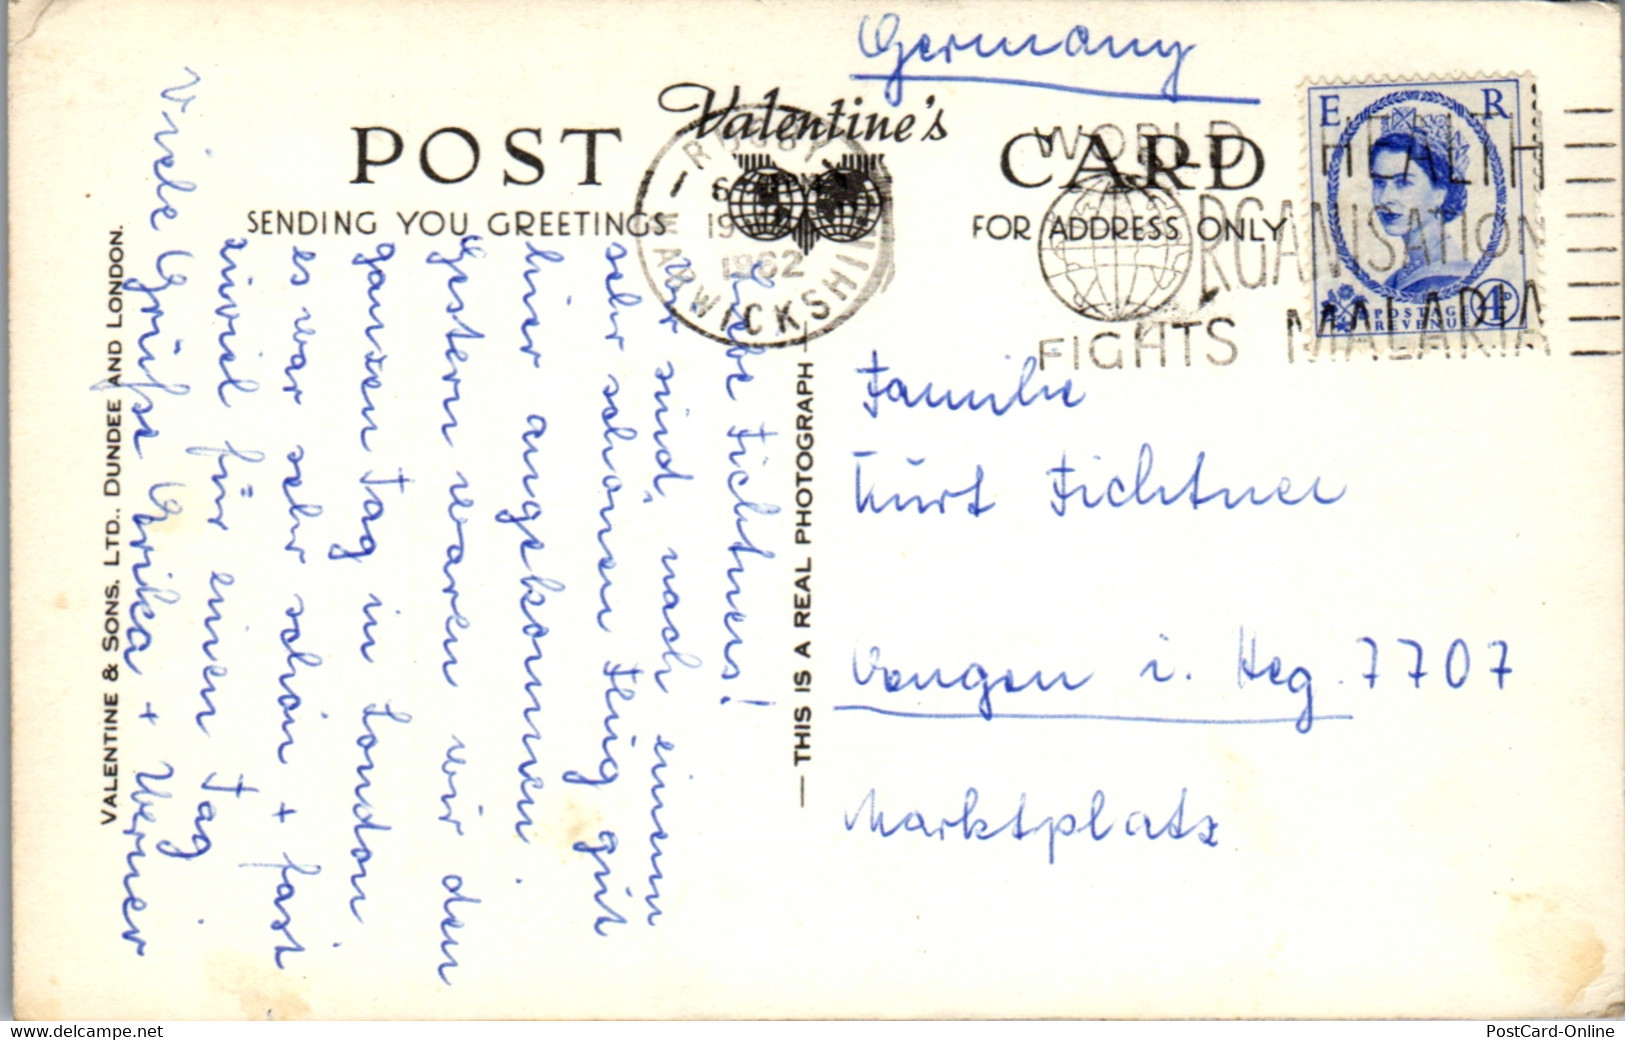 Germany
Valentine's
POST CARD
SENDING YOU GREETINGS
FOR ADDRESS ONLY
RUGBY
WARWICKSHIRE
1962
WORLD HEALTH
ORGANISATION
FIGHTS MALARIA
E R
POSTAGE
REVENUE
4D
Liebe Fichtners!
Wir sind, nach einem
sehr schönen Flug gut
hier angekommen.
Gestern waren wir den
ganzen Tag in London.
es war sehr schön + fast
zuviel für einen Tag.
Viele Grüße Erika + Werner
Familie
Kurt Fichtner
Engen i. Heg. 7707
Marktplatz
VALENTINE & SONS. LTD., DUNDEE AND LONDON.
— THIS IS A REAL PHOTOGRAPH —
PostCard-Online